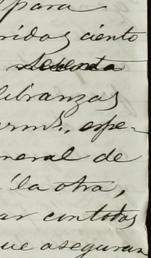 para
ridos ciento
sesenta
libranzas
erms. espe-
neral de
la otra,
ar con totas
que aseguran